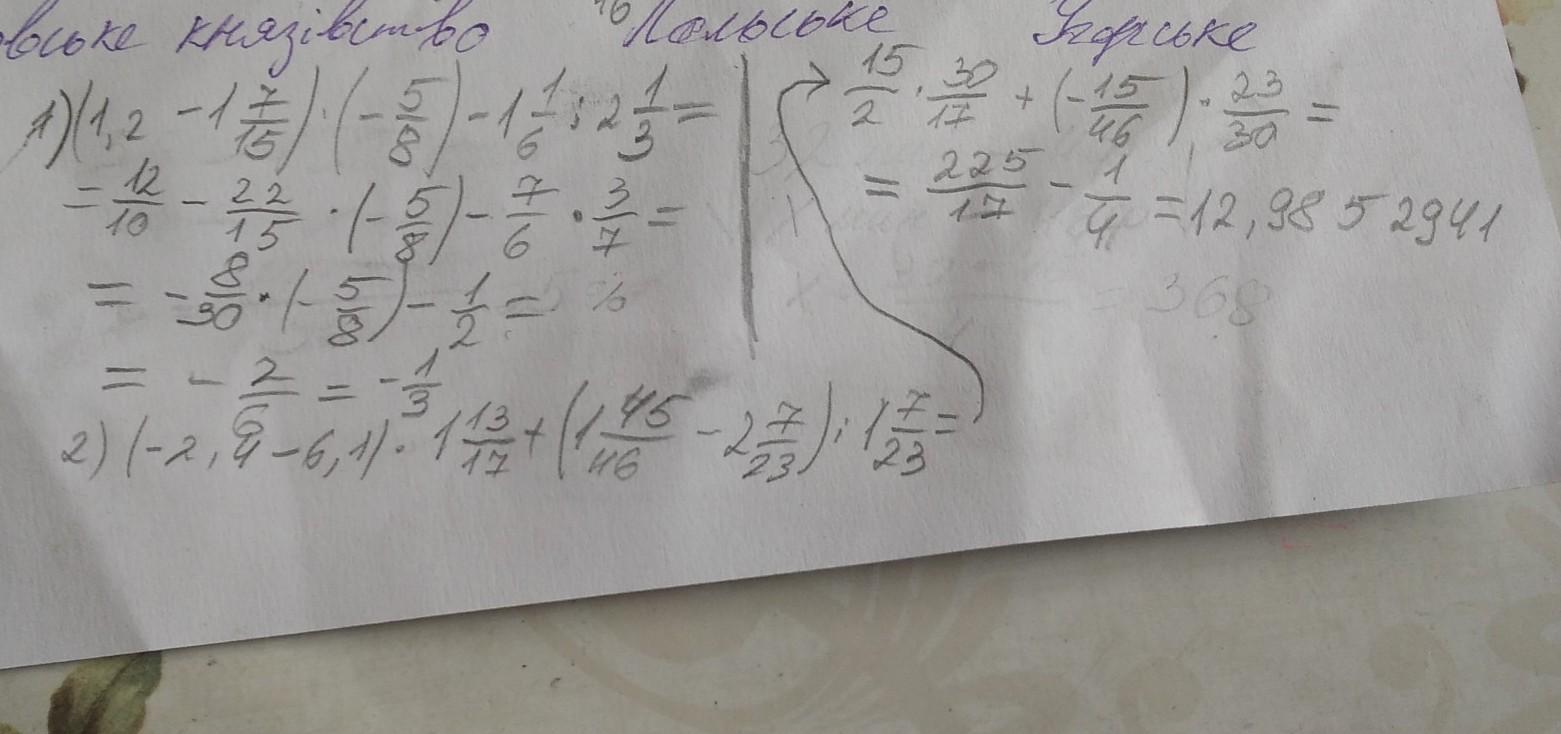 вське князівство 16 Польське Угорське
1) (1,2 - 1 7/15) · (- 5/8) - 1 1/6 : 2 1/3 =
= 12/10 - 22/15 · (- 5/8) - 7/6 · 3/7 =
= - 8/30 · (- 5/8) - 1/2 =
= - 2/6 = - 1/3
2) (-2,4 - 6,1) · 1 13/17 + (1 45/46 - 2 7/23) : 1 7/23 =
15/2 · 30/17 + (- 15/46) · 23/30 =
= 225/17 - 1/4 = 12,9852941
= 368